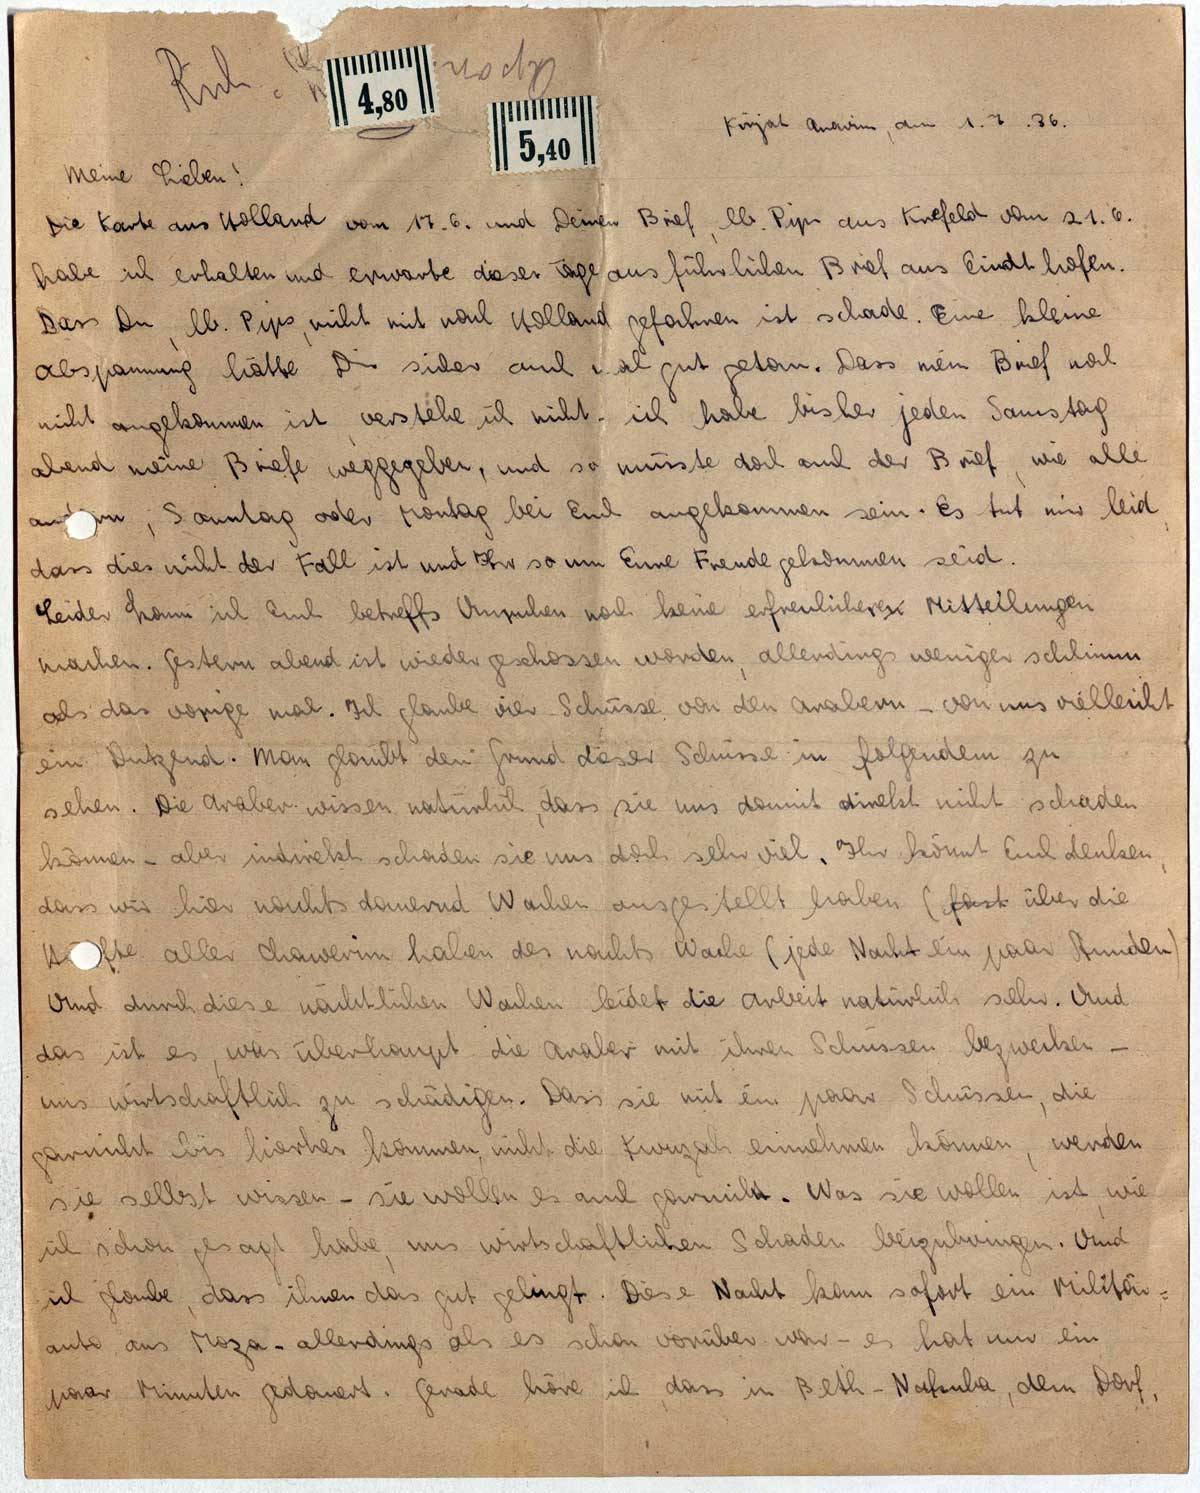 4,80
5,40
Kirjat Anavim, den 1.7.36.
Meine Lieben!
Die Karte aus Holland vom 17.6. und Deinen Brief, lb. Pips aus Krefeld vom 21.6.
habe ich erhalten und erwarte dieser Tage ausführlichen Brief aus Eindthofen.
Dass Du, lb. Pips, nicht mit nach Holland gefahren ist schade. Eine kleine
Abspannung hätte Dir sicher auch mal gut getan. Dass mein Brief noch
nicht angekommen ist, verstehe ich nicht - ich habe bisher jeden Samstag
abend meine Briefe weggegeben, und so müsste doch auch der Brief, wie alle
andern, Sonntag oder Montag bei Euch angekommen sein. Es tut mir leid,
dass dies nicht der Fall ist und Ihr so um Eure Freude gekommen seid.
Leider kann ich Euch betreffs Unruhen noch keine erfreulicheren Mitteilungen
machen. Gestern abend ist wieder geschossen worden, allerdings weniger schlimm
als das vorige mal. Ich glaube vier Schüsse von den Arabern - von uns vielleicht
ein Dutzend. Man glaubt den Grund dieser Schüsse in folgendem zu
sehen. Die Araber wissen natürlich, dass sie uns damit direkt nicht schaden
können - aber indirekt schaden sie uns doch sehr viel. Ihr könnt Euch denken,
dass wir hier nachts dauernd Wachen ausgestellt haben (fast über die
Hälfte aller Chawerim haben des nachts Wache (jede Nacht ein paar Stunden)
Und durch diese nächtlichen Wachen leidet die Arbeit natürlich sehr. Und
das ist es, was überhaupt die Araber mit ihren Schüssen bezwecken -
uns wirtschaftlich zu schädigen. Dass sie mit ein paar Schüssen, die
garnicht bis hierher kommen, nicht die Kwuzah einnehmen können, werden
sie selbst wissen - sie wollen es auch garnicht. Was sie wollen ist, wie
ich schon gesagt habe, uns wirtschaftlichen Schaden beizubringen. Und
ich glaube, dass ihnen das gut gelingt. Diese Nacht kam sofort ein Militär=
auto aus Moza - allerdings als es schon vorüber war - es hat nur ein
paar Minuten gedauert. Gerade höre ich, dass in Beth-Nakuba, dem Dorf,